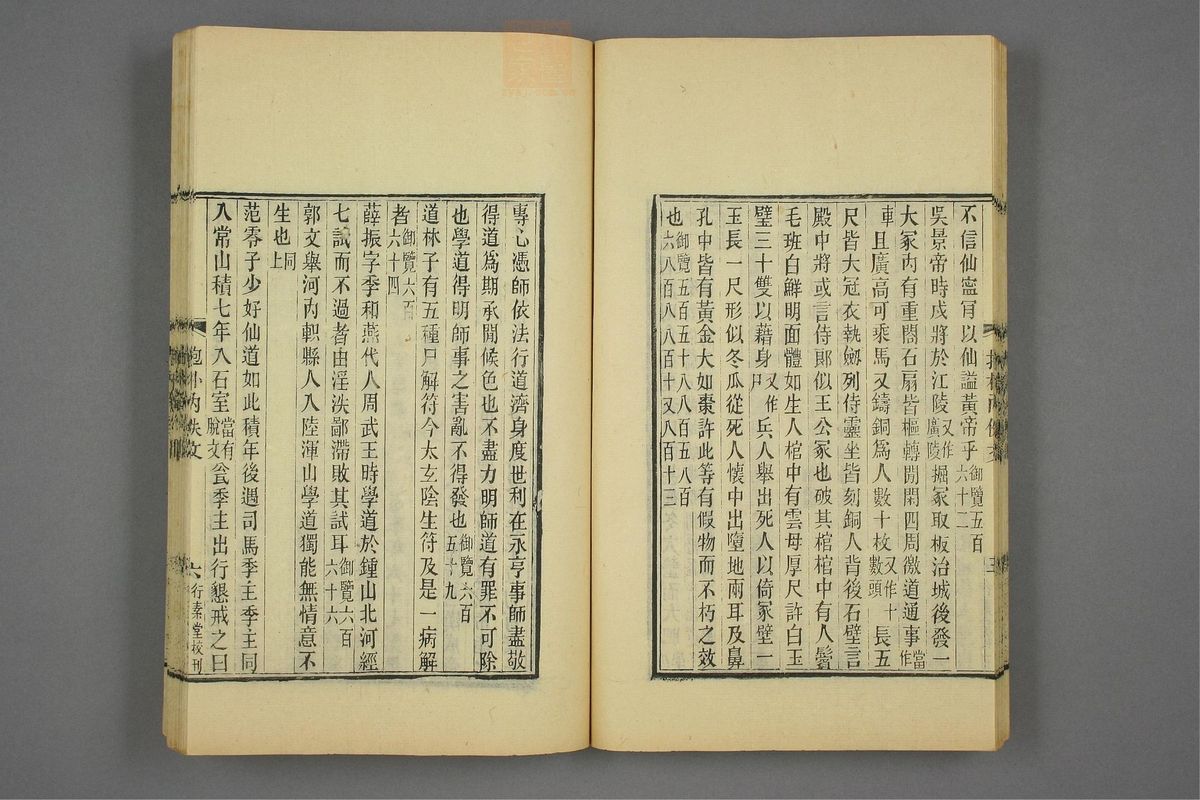 不信仙甯肎以仙謚黃帝乎御覽五百六十二
吳景帝時戍將於江陵又作廣陵掘冢取板治城後發一
大冢內有重閤石扇皆樞轉開閑四周徼道通事當作
車且廣高可乘馬又鑄銅爲人數十枚又作十數頭長五
尺皆大冠衣執劒列侍靈坐皆刻銅人背後石壁言
殿中將或言侍郞似王公冢也破其棺棺中有人鬢
毛班白鮮明面體如生人棺中有雲母厚尺許白玉
璧三十雙以藉身又作尸兵人舉出死人以倚冢壁一
玉長一尺形似冬瓜從死人懷中出墮地兩耳及鼻
孔中皆有黃金大如棗許此等有假物而不朽之效
也御覽五百五十八八百五八百六八百八八百十又八百十三
三
專心憑師依法行道濟身度世利在永亨事師盡敬
得道爲期承閒候色也不盡力明師道有罪不可除
也學道得明師事之害亂不得發也御覽六百五十九
道林子有五種尸解符今太玄陰生符及是一病解
者御覽六百六十四
薛振字季和燕代人周武王時學道於鍾山北河經
七試而不過者由淫泆鄙滯敗其試耳御覽六百六十六
郭文舉河內軹縣人入陸渾山學道獨能無情意不
生也同上
范零子少好仙道如此積年後遇司馬季主季主同
入常山積七年入石室當有脫文瓮季主出行懇戒之曰
抱朴內佚文
六
行素堂校刊